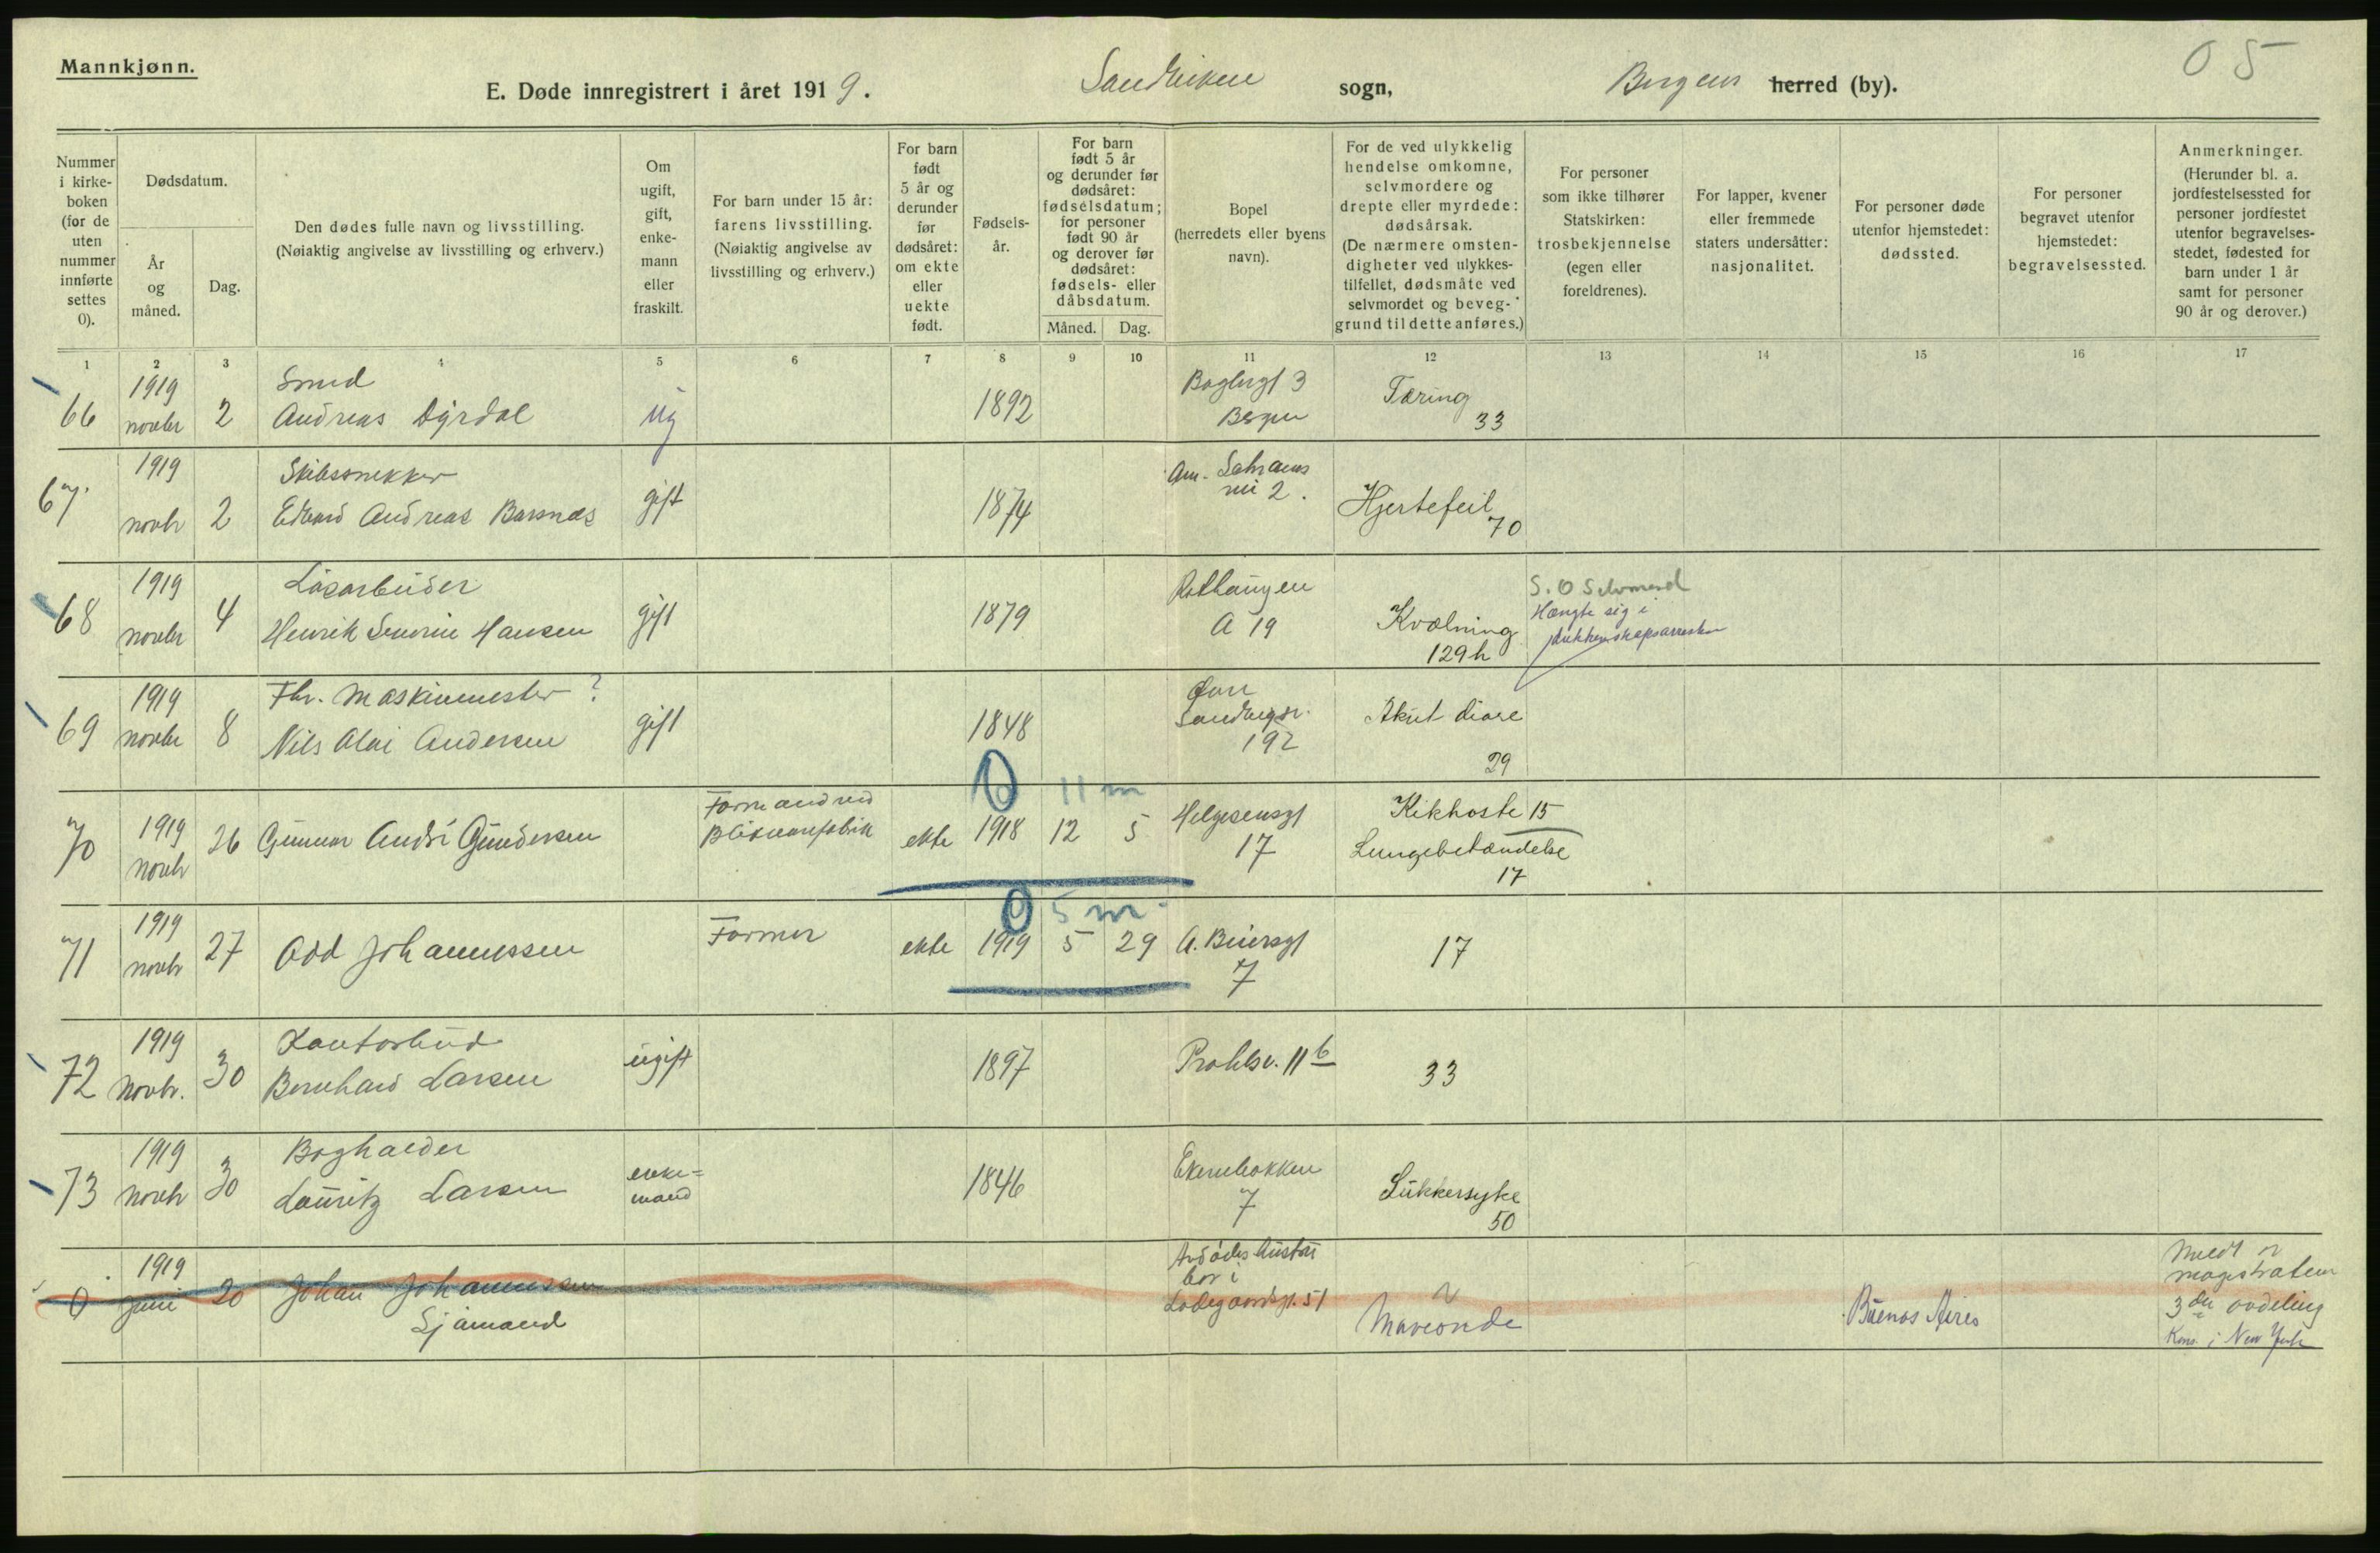 Mannkjønn.
E. Døde innregistrert i året 1919. Sandviken sogn, Bergens herred (by).
05
Nummer i kirke-boken (for de uten nummer innførte settes 0).
Dødsdatum.
År og måned.
Dag.
Den dødes fulle navn og livsstilling.
(Nøiaktig angivelse av livsstilling og erhverv.)
Om ugift, gift, enke-mann eller fraskilt.
For barn under 15 år: farens livsstilling. (Nøiaktig angivelse av livsstilling og erhverv.)
For barn født 5 år og derunder før dødsåret: om ekte eller uekte født.
Fødsels-år.
For barn født 5 år og derunder før dødsåret: fødselsdatum; for personer født 90 år og derover før dødsåret: fødsels- eller dåbsdatum.
Måned. Dag.
Bopel (herredets eller byens navn).
For de ved ulykkelig hendelse omkomne, selvmordere og drepte eller myrdede: dødsårsak. (De nærmere omsten-digheter ved ulykkes-tilfellet, dødsmåte ved selvmordet og beveg-grund til dette anføres.)
For personer som ikke tilhører Statskirken: trosbekjennelse (egen eller foreldrenes).
For lapper, kvener eller fremmede staters undersåtter: nasjonalitet.
For personer døde utenfor hjemstedet: dødssted.
For personer begravet utenfor hjemstedet: begravelsessted.
Anmerkninger. (Herunder bl. a. jordfestelsessted for personer jordfestet utenfor begravelses-stedet, fødested for barn under 1 år samt for personer 90 år og derover.)
1 2 3 4 5 6 7 8 9 10 11 12 13 14 15 16 17
66 1919 novbr 2 Smed
Andreas Dyrdal ug 1892 3
Bergen Tæring
33
67 1919 novbr 2 Skibssnekker
Edvard Andreas Barsnæs gift 1874 2. Hjertefeil
70
68 1919 novbr 4 Løsarbeider
Henrik Severin Hansen gift 1879 Rothaugen
A 19 Kvælning
129h S. O Selvmord
Hængte sig i
69 1919 novbr 8 Fhv. Maskinmester ?
Nils Olai Andersen gift 1848 Øvre
192 Akut diare
29
0 11 m
70 1919 novbr 26 Gunnar André Gundersen Formand ved
ekte 1918 12 5 Helgesensgt
17 Kikhoste 15
Lungebetændelse
17
0 5 m
71 1919 novbr 27 Odd Johannessen Former ekte 1919 5 29 A. Beiersgt
7 17
72 1919 Novbr. 30 Kontorbud
Bernhard Larsen ugift 1897 11 b 33
73 1919 Novbr 30 Boghalder
Lauritz Larsen enke=
mand 1846 Ekrenbakken
7 Sukkersyke
50
0 1919 juni 20 Johan Johannessen
Sjømand hustru
bor i
Ladegaardsgt. 51 Maveonde Buenos Aires
magistraten
3die avdeling
Kons. i New York